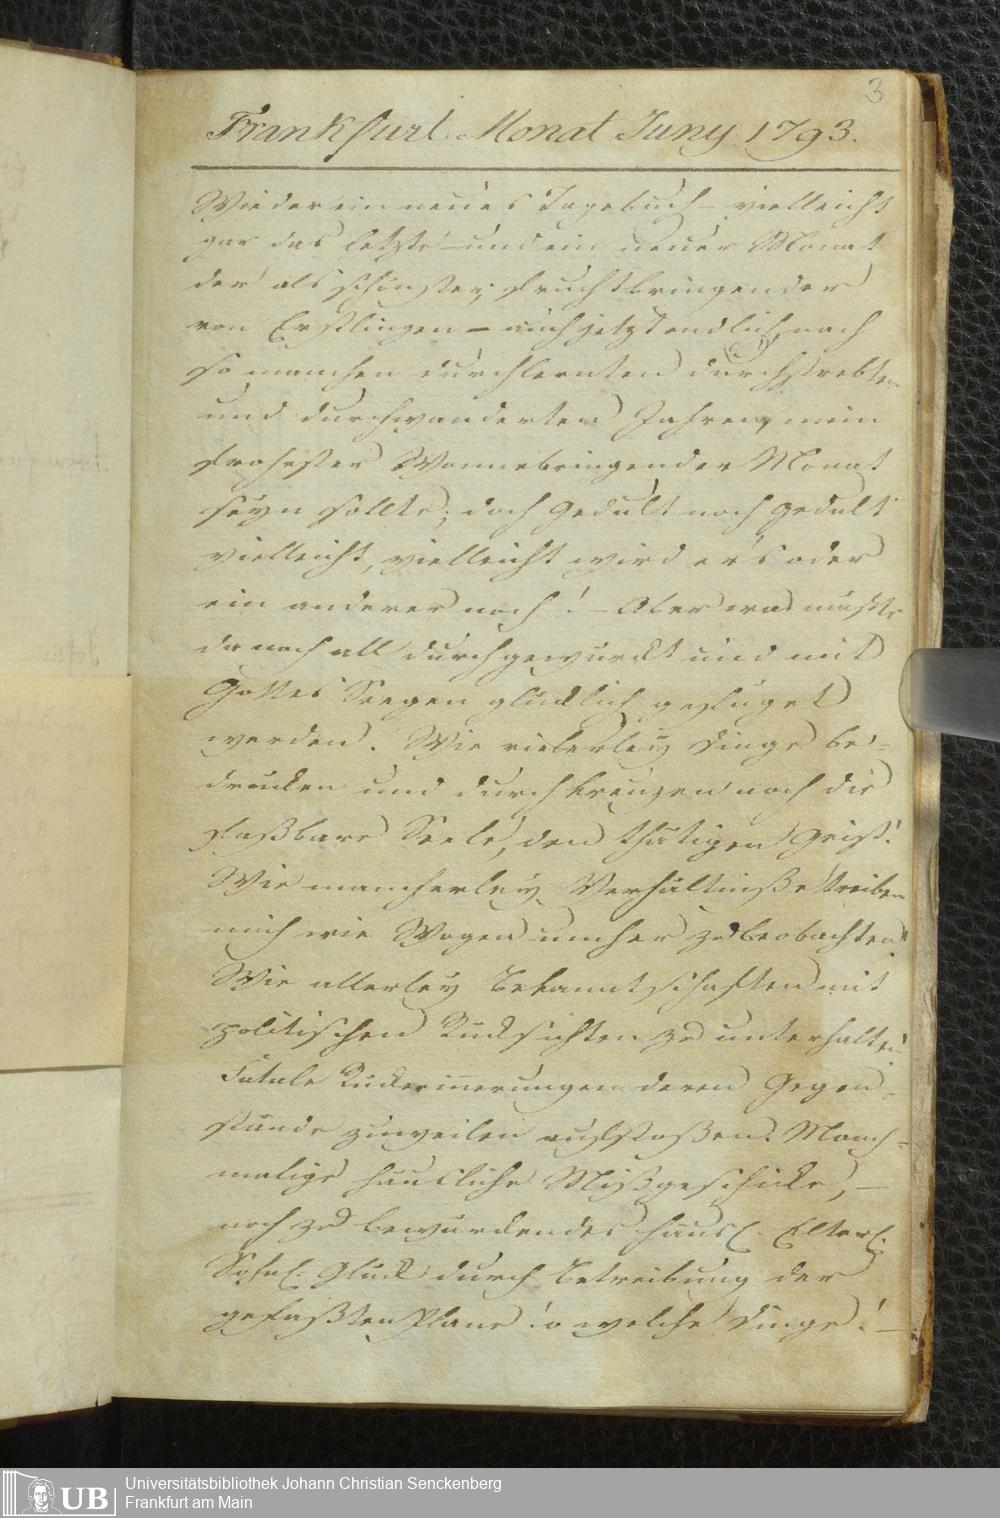 3
Frankfurt. Monat Juny 1793.
Wieder ein neues Tagebuch – vielleicht
gar das letzte – und ein neuer Monat
der als schönster, fruchtbringender
von Erstlingen – auch jetzt endlich, nach
so manchen durchlernten durchstrebten
und durchwanderten Jahren, mein
frohester Wonnebringender Monat
seyn sollte; doch Gedult noch Gedult
vielleicht, vielleicht wird er's oder
ein anderer noch! – Aber was müßte
da noch all durchgewürckt und mit
Gottes Seegen glücklich gefüget
werden. Wie vielerley Dinge be=
drücken und durchkreuzen noch die
faßbare Seele, den thätigen Geist!
Wie mancherley Verhältniße treiben
mich wie Wogen umher zu beobachten!
Wie allerley Bekanntschaften mit
politischen Rücksichten zu unterhalten!
Fatale Rückerinnerungen deren Gegen=
stände zuweilen aufstoßen. Manch=
malige häusliche Mißgeschicke, –
noch zu bewürckendes häusl. Elterl.
Sohnl. Glück durch Betreibung der
gefaßten Plane! o welche Dinge! –
UB
Universitätsbibliothek Johann Christian Senckenberg
Frankfurt am Main